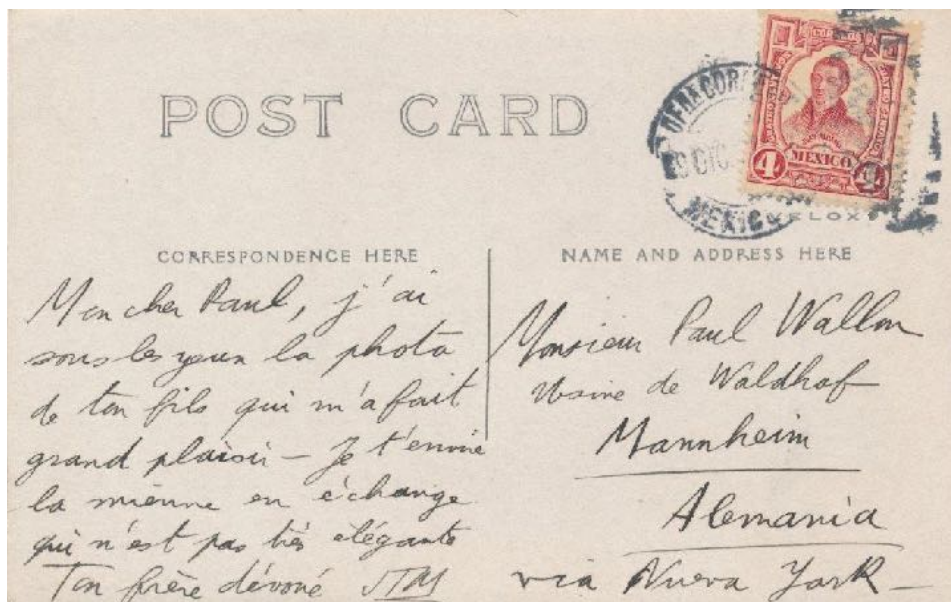 POST CARD
CORREOS
4 MEXICO 4
MEXICO
VELOX
CORRESPONDENCE HERE
Mon cher Paul, j'ai
sous les yeux la photo
de ton fils qui m'a fait
grand plaisir - Je t'envoie
la mienne en échange
qui n'est pas très élégante
Ton frère dévoué
NAME AND ADDRESS HERE
Monsieur Paul Wallon
Usine de Waldhof
Mannheim
Alemania
via Nueva York -